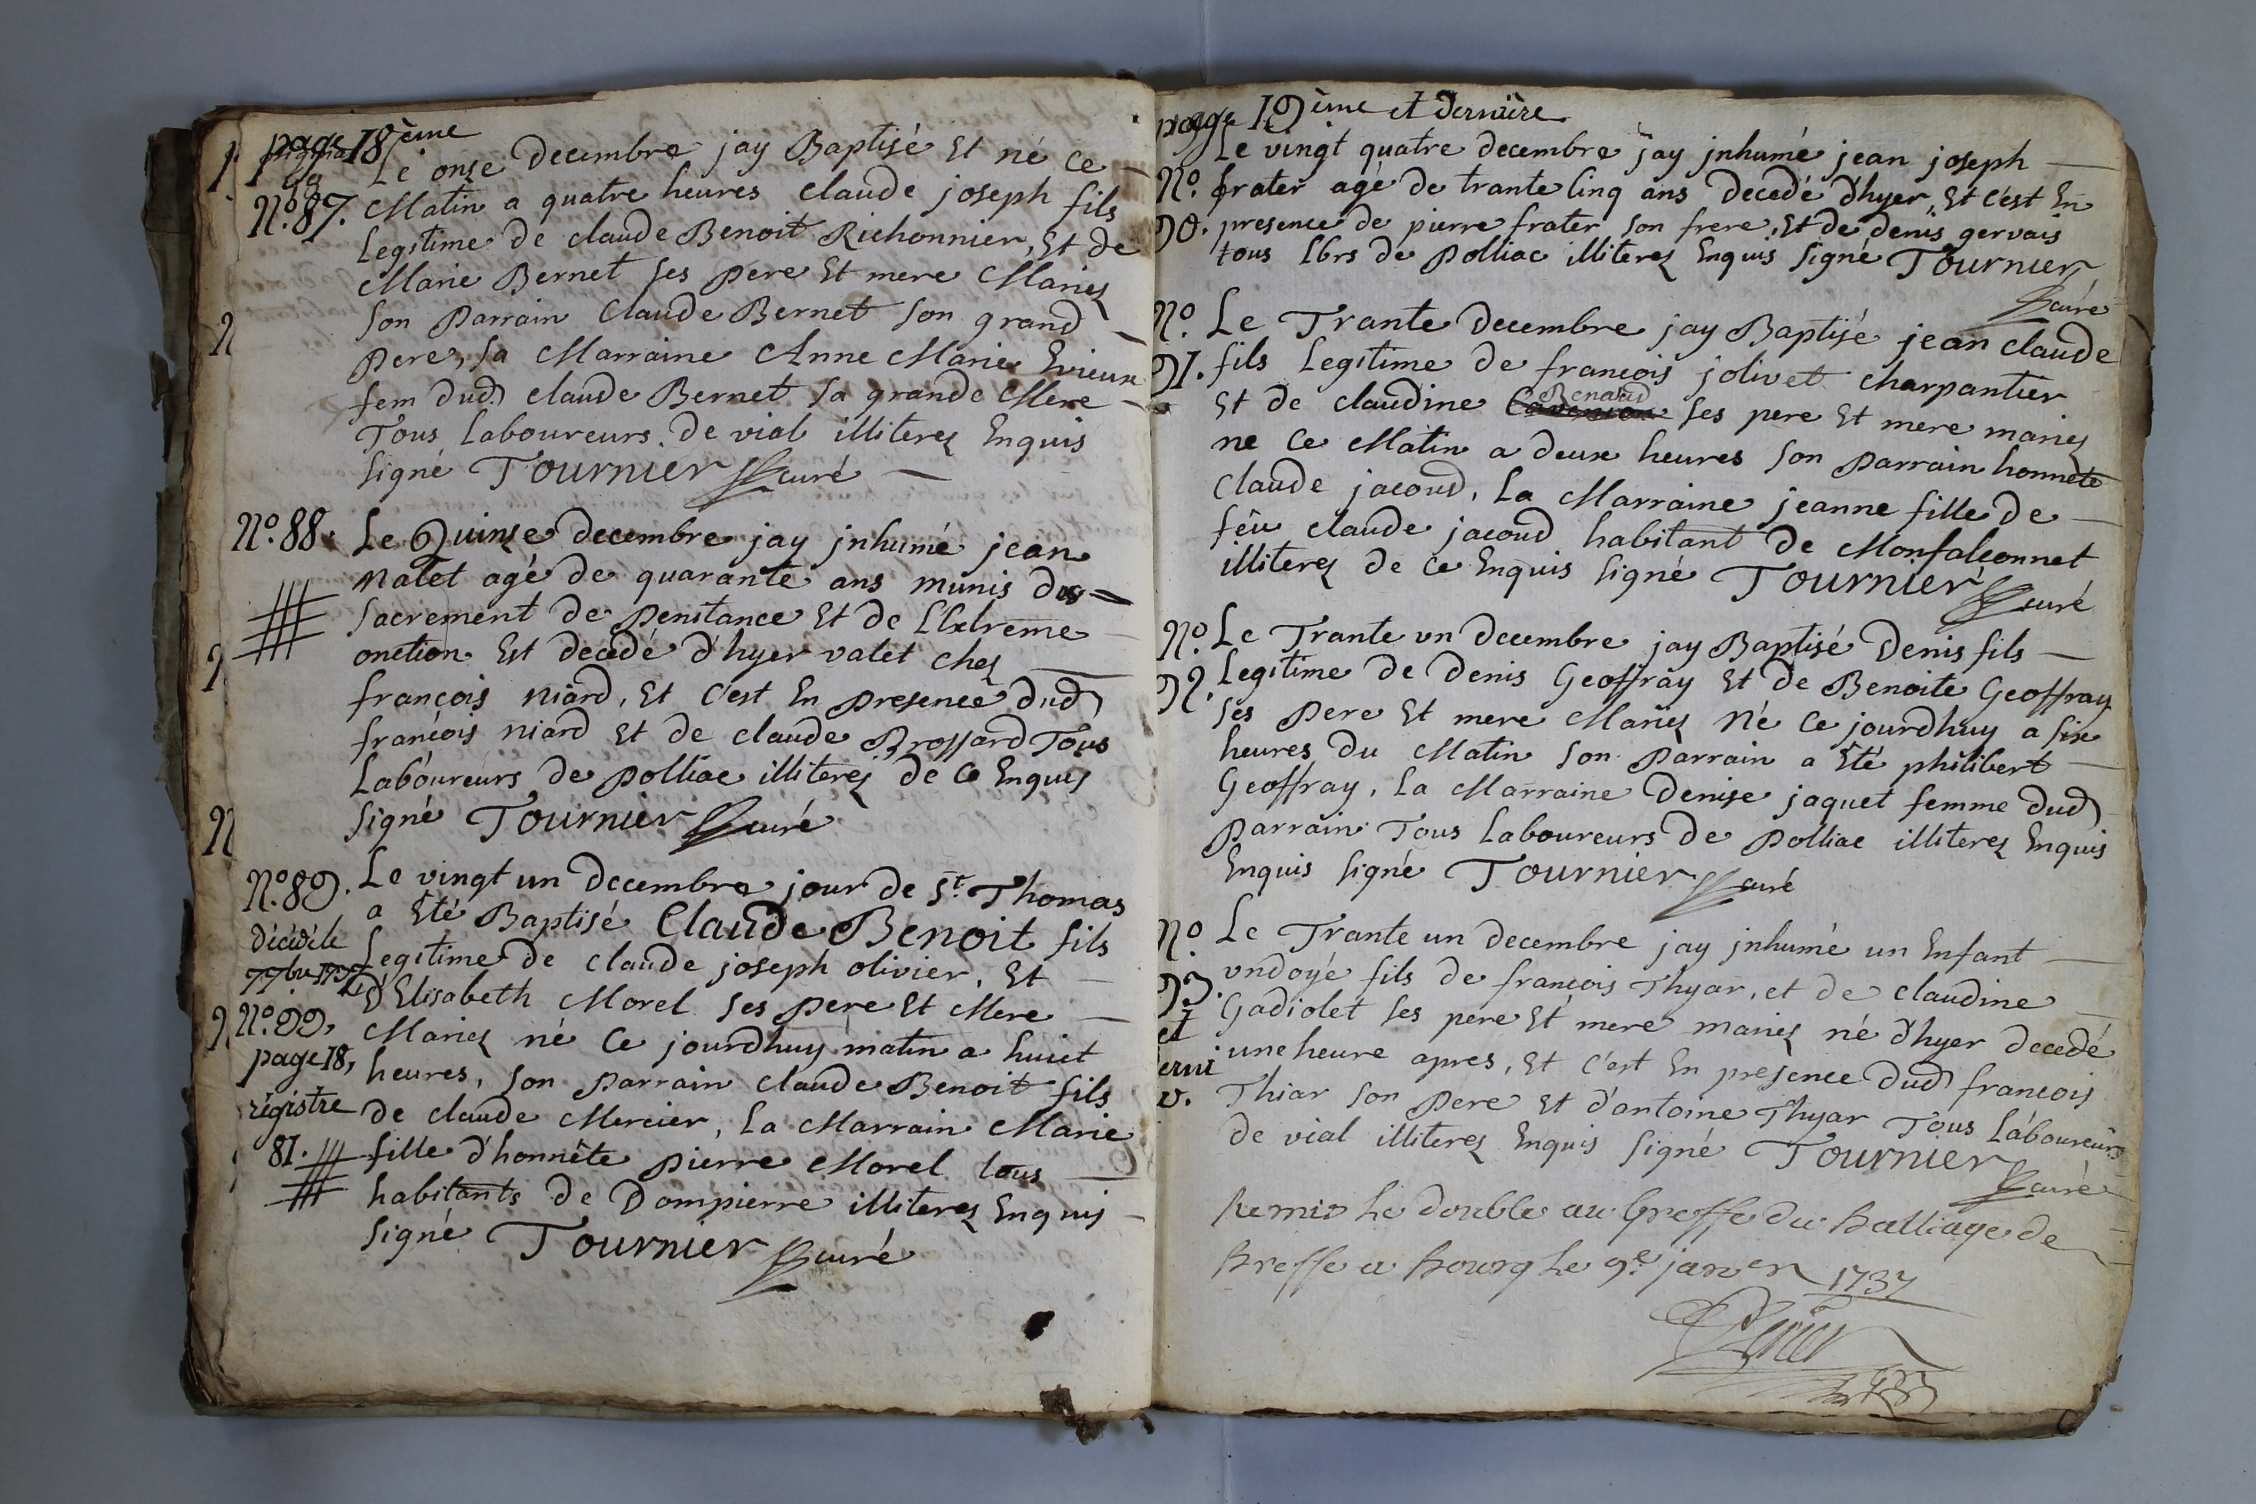 page 18ème
Le onze decembre jay Baptisé Et né Ce
No. 87. Matin a quatre heures claude joseph fils
Legitime de claude Benoit Richonnier, Et de
Marie Bernet ses pere Et mere Mariez
son parrain Claude Bernet son grand
pere, sa Marraine Anne Marie Evieux
fem dud. claude Bernet sa grande Mere
Tous Laboureurs de vial illiterez Enquis
signé Tournier curé
No. 88. Le Quinze decembre jay jnhumé jean
Natet agé de quarante ans munis des
sacrement de penitance Et de LExtreme
onction Est decedé d'hyer valet chez
françois niard, Et c'est En presence dud
françois niard Et de claude Brossard Tous
Laboureurs de polliac illiterez de ce Enquis
signé Tournier curé
No. 89. Le vingt un decembre jour de St. Thomas
a Eté Baptisé Claude Benoit fils
décédé le Legitime de claude joseph olivier, Et
d'Elisabeth Morel ses pere Et Mere
No. 99, Mariez né Ce jourdhuy matin a huict
page 18, heures, son parrain claude Benoit fils
régistre de claude Mercier, La Marrain Marie
81. fille d'honnête pierre Morel tous
habitants de Dompierre illiterez Enquis
signé Tournier curé
page 19ème et dernière
Le vingt quatre decembre jay jnhumé jean joseph
No. frater agé de trante Cinq ans decedé d'hyer, Et c'est En
90. presence de pierre frater son frere, Et de denis gervais
tous Lbrs de polliac illiterez Enquis signé Tournier
curé
No. Le Trante decembre jay Baptisé jean claude
91. fils Legitime de françois jolivet charpantier
Renaud
Et de claudine ses pere Et mere mariez
ne Ce Matin a deux heures son parrain honnete
Claude jacoud, La Marraine jeanne fille de
feu claude jacoud habitant de Monfalconnet
illiterez de ce Enquis signé Tournier curé
No. Le Trante vn decembre jay Baptisé Denis fils
92. Legitime de Denis Geoffray Et de Benoite Geoffray
ses pere Et mere Mariez Né Ce jourdhuy a six
heures du Matin son parrain a Eté philibert
Geoffray, La Marraine Denise jaquet femme dud
parrain Tous Laboureurs de polliac illiterez Enquis
Enquis signé Tournier curé
No. Le Trante un decembre jay jnhumé un Enfant
93. vndoyé fils de françois Thyar, et de claudine
et Gadiolet ses pere Et mere mariez né d'hyer decedé
une heure apres, Et c'est En presence dud françois
Thiar son pere Et d'antoine Thyar Tous Laboureurs
de vial illiterez Enquis signé Tournier
curé
Remis Le double au Greffe du Balliage de
Bresse a Bourg Le 9e janver 1737